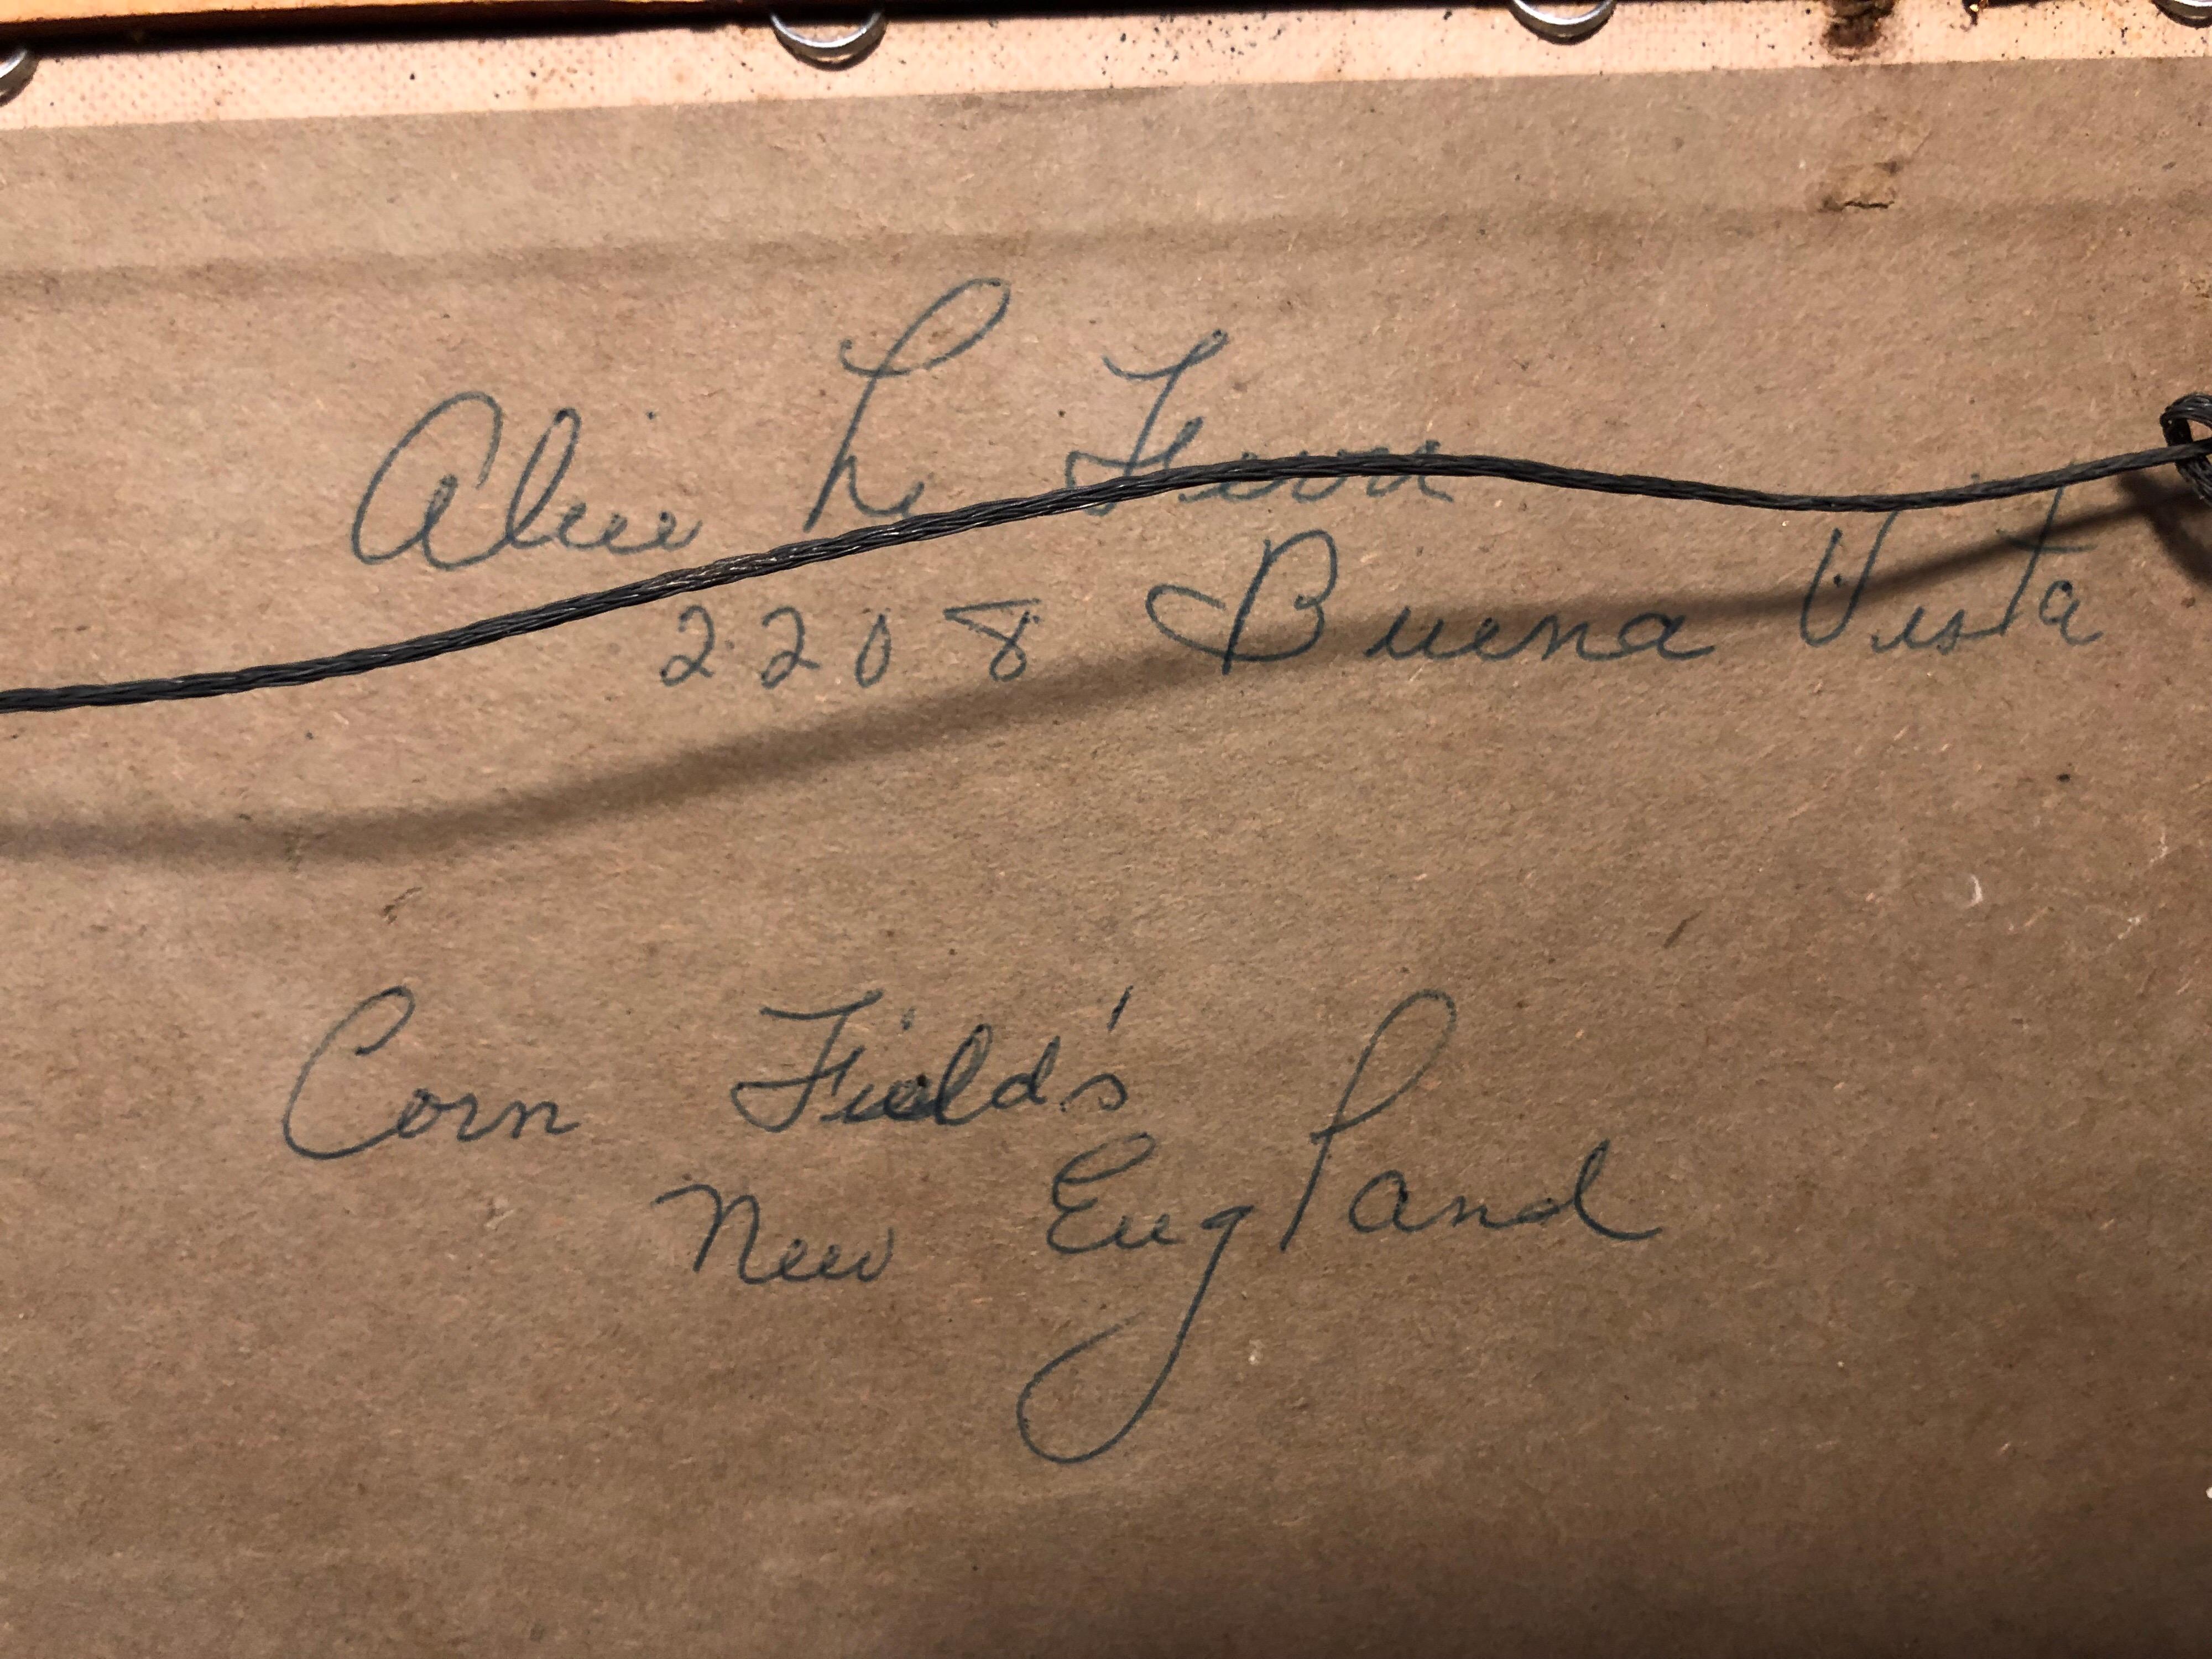 Alice Le
2208 Buena Vista
Corn Field's
New England